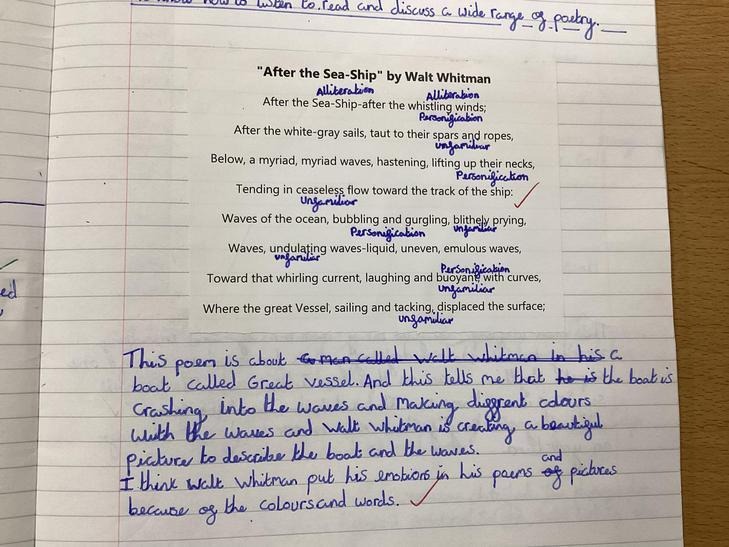 to know how to listen to, read and discuss a wide range of poetry.
"After the Sea-Ship" by Walt Whitman
Alliteration Alliteration
After the Sea-Ship-after the whistling winds;
Personification
After the white-gray sails, taut to their spars and ropes,
unfamiliar
Below, a myriad, myriad waves, hastening, lifting up their necks,
Personification
Tending in ceaseless flow toward the track of the ship:
Unfamiliar
Waves of the ocean, bubbling and gurgling, blithely prying,
Personification unfamiliar
Waves, undulating waves-liquid, uneven, emulous waves,
unfamiliar Personification
Toward that whirling current, laughing and buoyant with curves,
unfamiliar
Where the great Vessel, sailing and tacking, displaced the surface;
unfamiliar
ed
This poem is about a man called Walt Whitman in his a
boat called Great vessel. And this tells me that he is the boat is
Crashing into the waves and making diffrent colours
with the waves and Walt Whitman is creating a beautiful
picture to describe the boat and the waves.
I think Walt Whitman put his emotions in his poems of and pictures
because of the colours and words.